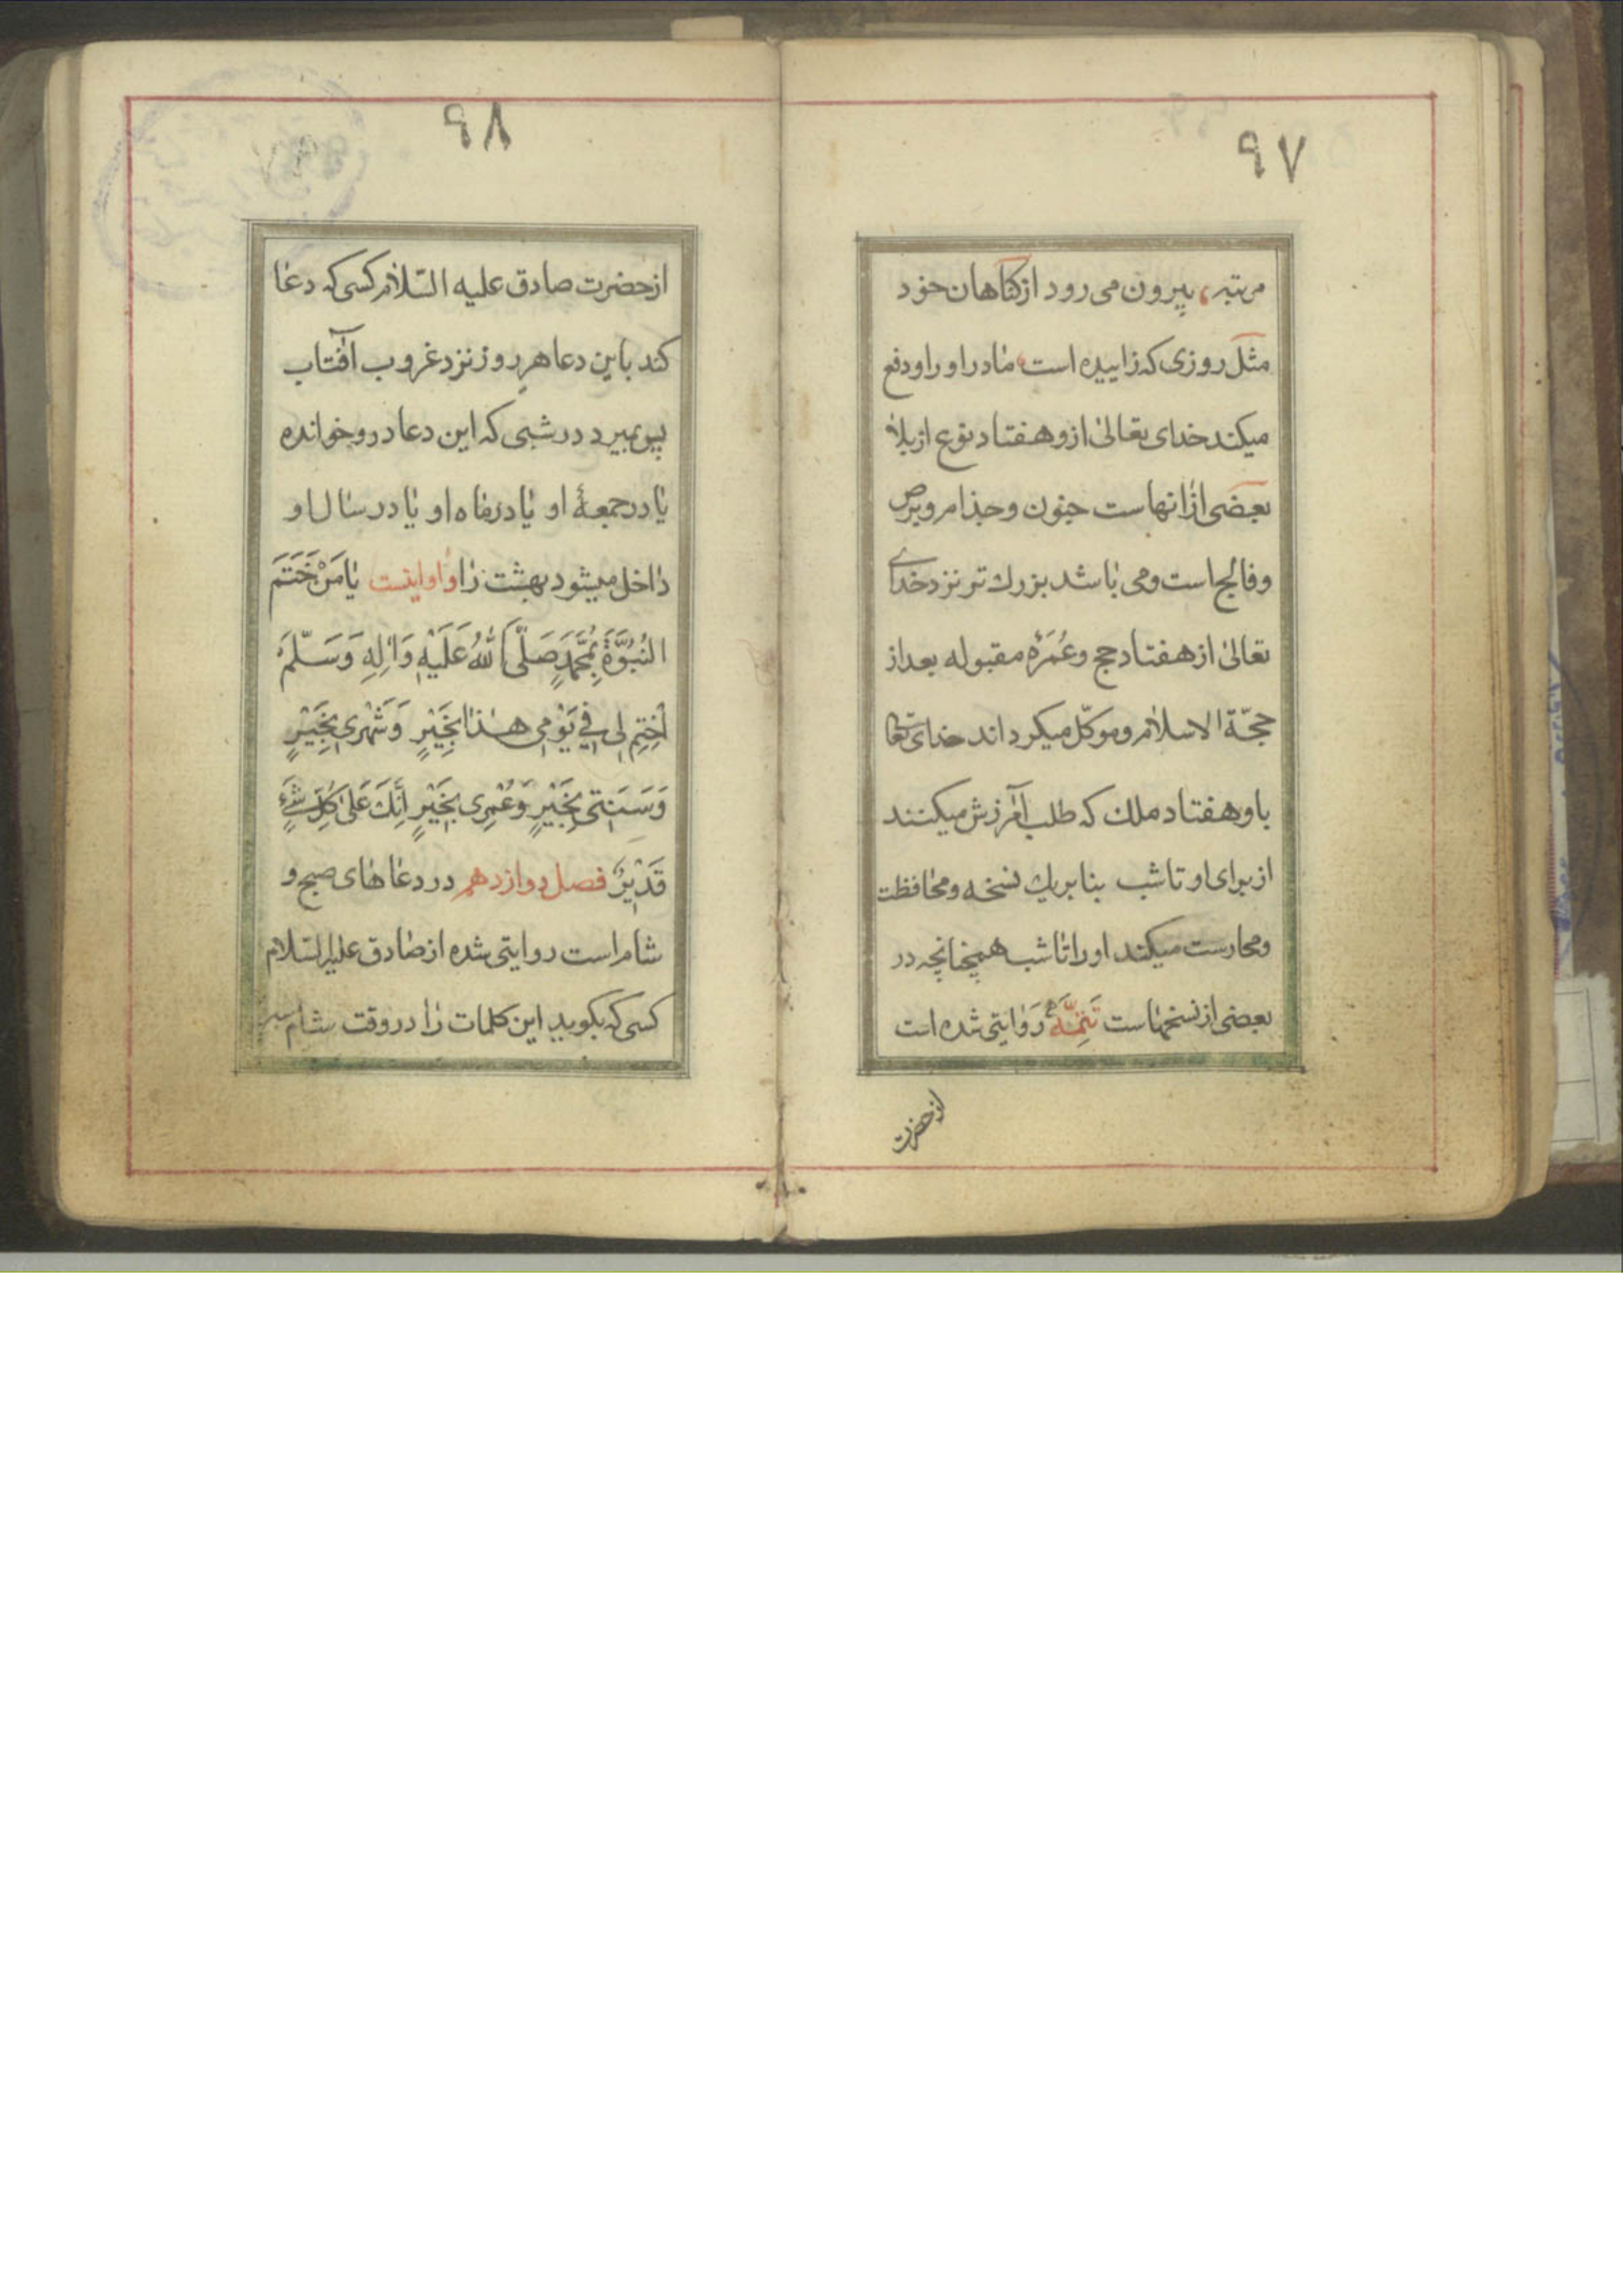 ۹۷
مرتبه، بیرون می رود از کناهان خود
مثل روزی که زاییده است، مادر او را و دفع
میکند خدای تعالی از و هفتاد نوع از بلا
بعضی از انهاست جنون و جذام و برص
و فالج است و می باشد بزرك تر نزد خدای
تعالی از هفتاد حج و عُمَرَه مقبوله بعد از
حجّة الاسلام و موکّل میکرداند خدای تعالی
باو هفتاد ملك که طلب آمرزش میکنند
از برای او تا شب بنا بریك نسخه و محافظت
و محارست میکنند او را تا شب همچنانچه در
بعضی از نسخهاست تَتِمَّه رَوایتی شده است
از حضرت
۹۸
از حضرت صادق علیه السّلام کسی که دعا
کند باین دعا هر روز نزد غروب آفتاب
پس بمیرد در شبی که این دعا در و خوانده
یا در جمعهٔ او یا در ماه او یا در سال او
داخل میشود بهشت را و او اینست یا مَنْ خَتَمَ
النُبُوَّةَ بِمُحَمَّدٍ صَلَّی اللهُ عَلَیْهِ وَ الِهِ وَ سَلَّمَ
اَخِتِم لی فی یَوْمی هذا بِخَیْرٍ وَ شَهْری بِخَیْرٍ
وَ سَنَتی بِخَیْرٍ وَ عُمْری بِخَیْرٍ اِنَّكَ عَلی کُلِّ شَیْءٍ
قَدیْرٌ فصل دوازدهم در دعاهای صبح و
شام است روایتی شده از صادق علیه السّلام
کسی که بکوید این کلمات را در وقت شام سه